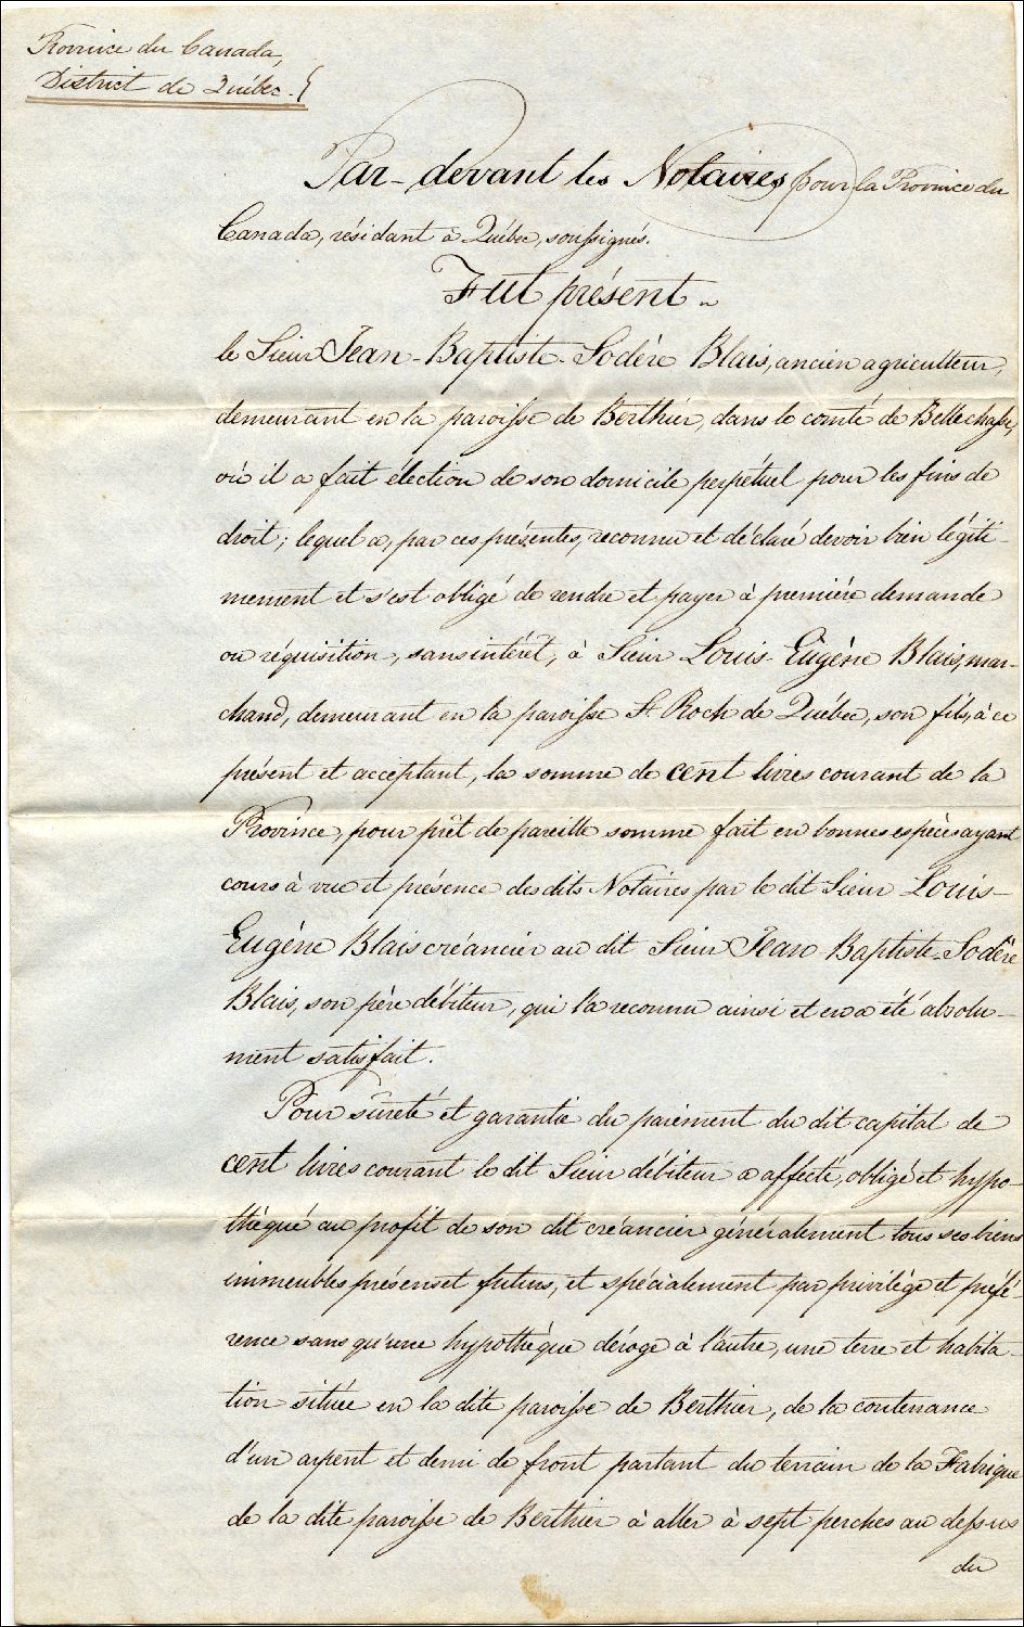 Province du Canada,
District de Québec.
Par-devant les Notaires pour la Province du
Canada, résidant à Québec, soussignés.
Fut présent
le Sieur Jean-Baptiste-Sodère Blais, ancien agriculteur,
demeurant en la paroisse de Berthier, dans le comté de Bellechasse,
où il a fait élection de son domicile perpétuel pour les fins de
droit; lequel a, par ces présentes, reconnu et déclaré devoir bien légiti-
mement et s'est obligé de rendre et payer à première demande
ou réquisition, sans intérêt, à Sieur Louis-Eugène Blais, mar-
chand, demeurant en la paroisse St. Roch de Québec, son fils, à ce
présent et acceptant, la somme de cent livres courant de la
Province, pour prêt de pareille somme fait en bonnes espèces ayant
cours à vue et présence desdits Notaires par le dit Sieur Louis-
Eugène Blais créancier au dit Sieur Jean Baptiste-Sodère
Blais, son père débiteur, qui l'a reconnu ainsi et en a été absolu-
ment satisfait.
Pour sûreté et garantie du paiement du dit capital de
cent livres courant le dit Sieur débiteur a affecté, obligé et hypo-
théqué au profit de son dit créancier généralement tous ses biens
immeubles présens et futurs, et spécialement par privilège et préfé-
rence sans qu'une hypothèque déroge à l'autre, une terre et habita-
tion située en la dite paroisse de Berthier, de la contenance
d'un arpent et demi de front partant du terrain de la Fabrique
de la dite paroisse de Berthier à aller à sept perches au dessus
du